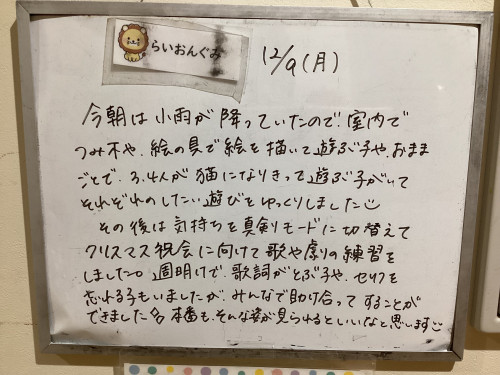 らいおんぐみ
12/9(月)
今朝は小雨が降っていたので、室内で
つみ木や、絵の具で絵を描いて遊ぶ子や、おまま
ごとで、3、4人が猫になりきって遊ぶ子がいて
それぞれのしたい遊びをゆっくりしました
その後は気持ちを真剣モードに切替えて
クリスマス祝会に向けて歌や劇の練習を
しました 週明けで、歌詞がとぶ子や、セリフを
忘れる子もいましたが、みんなで助け合ってすることが
できました 本番も、そんな姿が見られるといいなと思います